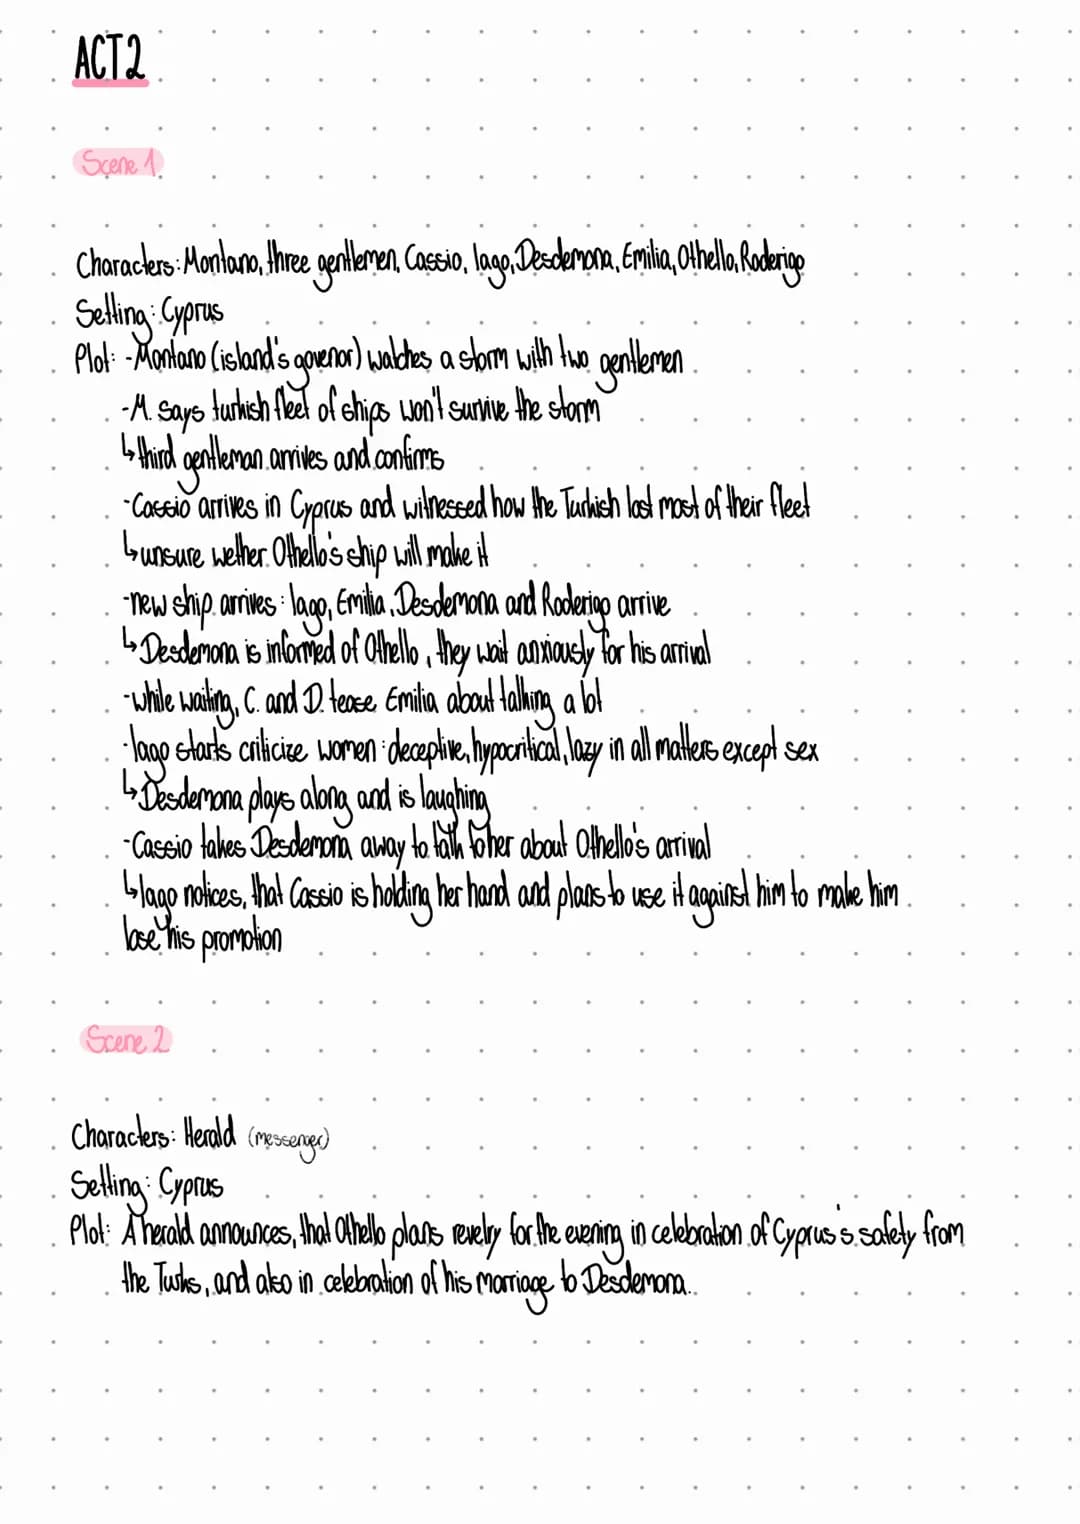 ACT 2
Scene 1
Characters: Montano, three gentlemen, Cassio, Iago, Desdemona, Emilia, Othello, Roderigo
Setting: Cyprus
Plot: -Montano (island's govenor) watches a storm with two gentlemen
-M. says turkish fleet of ships won't survive the storm
↳third gentleman arrives and confirms
-Cassio arrives in Cyprus and witnessed how the Turkish lost most of their fleet
↳unsure wether Othello's ship will make it
-new ship arrives: Iago, Emilia, Desdemona and Roderigo arrive
↳Desdemona is informed of Othello, they wait anxiously for his arrival
-while waiting, C. and D. tease Emilia about talking a lot
-Iago starts criticize women: deceptive, hypocritical, lazy in all matters except sex
↳Desdemona plays along and is laughing
-Cassio takes Desdemona away to talk to her about Othello's arrival
↳Iago notices, that Cassio is holding her hand and plans to use it against him to make him
lose his promotion
Scene 2
Characters: Herald (messenger)
Setting: Cyprus
Plot: A herald announces, that Othello plans revelry for the evening in celebration of Cyprus's safety from
the Turks, and also in celebration of his marriage to Desdemona.